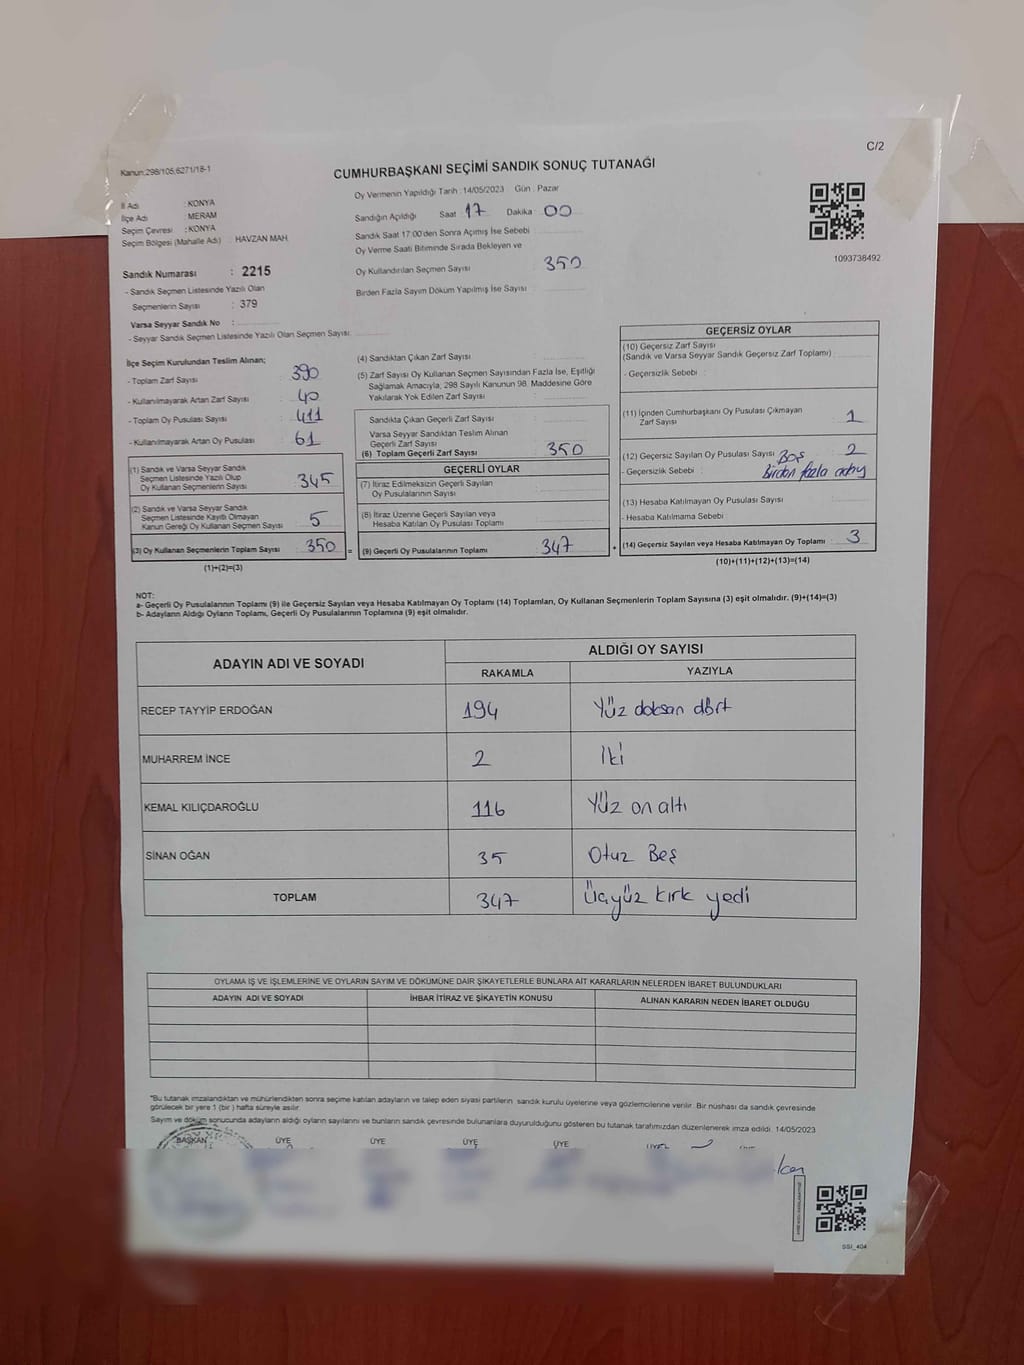 C/2
Kanun:298/105,6271/18-1
CUMHURBAŞKANI SEÇİMİ SANDIK SONUÇ TUTANAĞI
İl Adı : KONYA
İlçe Adı : MERAM
Seçim Çevresi : KONYA
Seçim Bölgesi (Mahalle Adı) : HAVZAN MAH.
Sandık Numarası : 2215
- Sandık Seçmen Listesinde Yazılı Olan
Seçmenlerin Sayısı : 379
Varsa Seyyar Sandık No :
- Seyyar Sandık Seçmen Listesinde Yazılı Olan Seçmen Sayısı:
Oy Vermenin Yapıldığı Tarih : 14/05/2023 Gün : Pazar
Sandığın Açıldığı Saat 17 Dakika 00
Sandık Saat 17:00'den Sonra Açımış İse Sebebi
Oy Verme Saati Bitiminde Sırada Bekleyen ve
Oy Kullandırılan Seçmen Sayısı 350
Birden Fazla Sayım Döküm Yapılmış İse Sayısı :
1093738492
İlçe Seçim Kurulundan Teslim Alınan;
- Toplam Zarf Sayısı : 390
- Kullanılmayarak Artan Zarf Sayısı : 40
- Toplam Oy Pusulası : 411
- Kullanılmayarak Artan Oy Pusulası : 61
(1) Sandık ve Varsa Seyyar Sandık
Seçmen Listesinde Yazılı Olup
Oy Kullanan Seçmenlerin Sayısı : 345
(2) Sandık ve Varsa Seyyar Sandık
Seçmen Listesinde Kayıtlı Olmayan
Kanun Gereği Oy Kullanan Seçmen Sayısı : 5
(3) Oy Kullanan Seçmenlerin Toplam Sayısı : 350 =
(1)+(2)=(3)
(4) Sandıktan Çıkan Zarf Sayısı :
(5) Zarf Sayısı Oy Kullanan Seçmen Sayısından Fazla İse, Eşitliği
Sağlamak Amacıyla, 298 Sayılı Kanunun 98. Maddesine Göre
Yakılarak Yok Edilen Zarf Sayısı :
Sandıkta Çıkan Geçerli Zarf Sayısı :
Varsa Seyyar Sandıktan Teslim Alınan
Geçerli Zarf Sayısı :
(6) Toplam Geçerli Zarf Sayısı : 350
GEÇERLİ OYLAR
(7) İtiraz Edilmeksizin Geçerli Sayılan
Oy Pusulalarının Sayısı :
(8) İtiraz Üzerine Geçerli Sayılan veya
Hesaba Katılan Oy Pusulası Toplamı :
(9) Geçerli Oy Pusulalarının Toplamı : 347 +
GEÇERSİZ OYLAR
(10) Geçersiz Zarf Sayısı
(Sandık ve Varsa Seyyar Sandık Geçersiz Zarf Toplamı) :
- Geçersizlik Sebebi :
(11) İçinden Cumhurbaşkanı Oy Pusulası Çıkmayan
Zarf Sayısı : 1
(12) Geçersiz Sayılan Oy Pusulası Sayısı : Boş 2
- Geçersizlik Sebebi : Birden fazla aday
(13) Hesaba Katılmayan Oy Pusulası Sayısı :
- Hesaba Katılmama Sebebi :
(14) Geçersiz Sayılan veya Hesaba Katılmayan Oy Toplamı : 3
(10)+(11)+(12)+(13)=(14)
NOT:
a- Geçerli Oy Pusulalarının Toplamı (9) ile Geçersiz Sayılan veya Hesaba Katılmayan Oy Toplamı (14) Toplamları, Oy Kullanan Seçmenlerin Toplam Sayısına (3) eşit olmalıdır. (9)+(14)=(3)
b- Adayların Aldığı Oyların Toplamı, Geçerli Oy Pusulalarının Toplamına (9) eşit olmalıdır.
ADAYIN ADI VE SOYADI ALDIĞI OY SAYISI
RAKAMLA YAZIYLA
RECEP TAYYİP ERDOĞAN 194 Yüz doksan dört
MUHARREM İNCE 2 İki
KEMAL KILIÇDAROĞLU 116 Yüz on altı
SİNAN OĞAN 35 Otuz Beş
TOPLAM 347 Üçyüz kırk yedi
OYLAMA İŞ VE İŞLEMLERİNE VE OYLARIN SAYIM VE DÖKÜMÜNE DAİR ŞİKAYETLERLE BUNLARA AİT KARARLARIN NELERDEN İBARET BULUNDUKLARI
ADAYIN ADI VE SOYADI İHBAR İTİRAZ VE ŞİKAYETİN KONUSU ALINAN KARARIN NEDEN İBARET OLDUĞU
*Bu tutanak imzalandıktan ve mühürlendikten sonra seçime katılan adayların ve talep eden siyasi partilerin sandık kurulu üyelerine veya gözlemcilerine verilir. Bir nüshası da sandık çevresinde
görülecek bir yere 1 (bir ) hafta süreyle asılır.
Sayım ve döküm sonucunda adayların aldığı oyların sayılarını ve bunların sandık çevresinde bulunanlara duyurulduğunu gösteren bu tutanak tarafımızdan düzenlenerek imza edildi. 14/05/2023
BAŞKAN ÜYE ÜYE ÜYE ÜYE
SSI_404